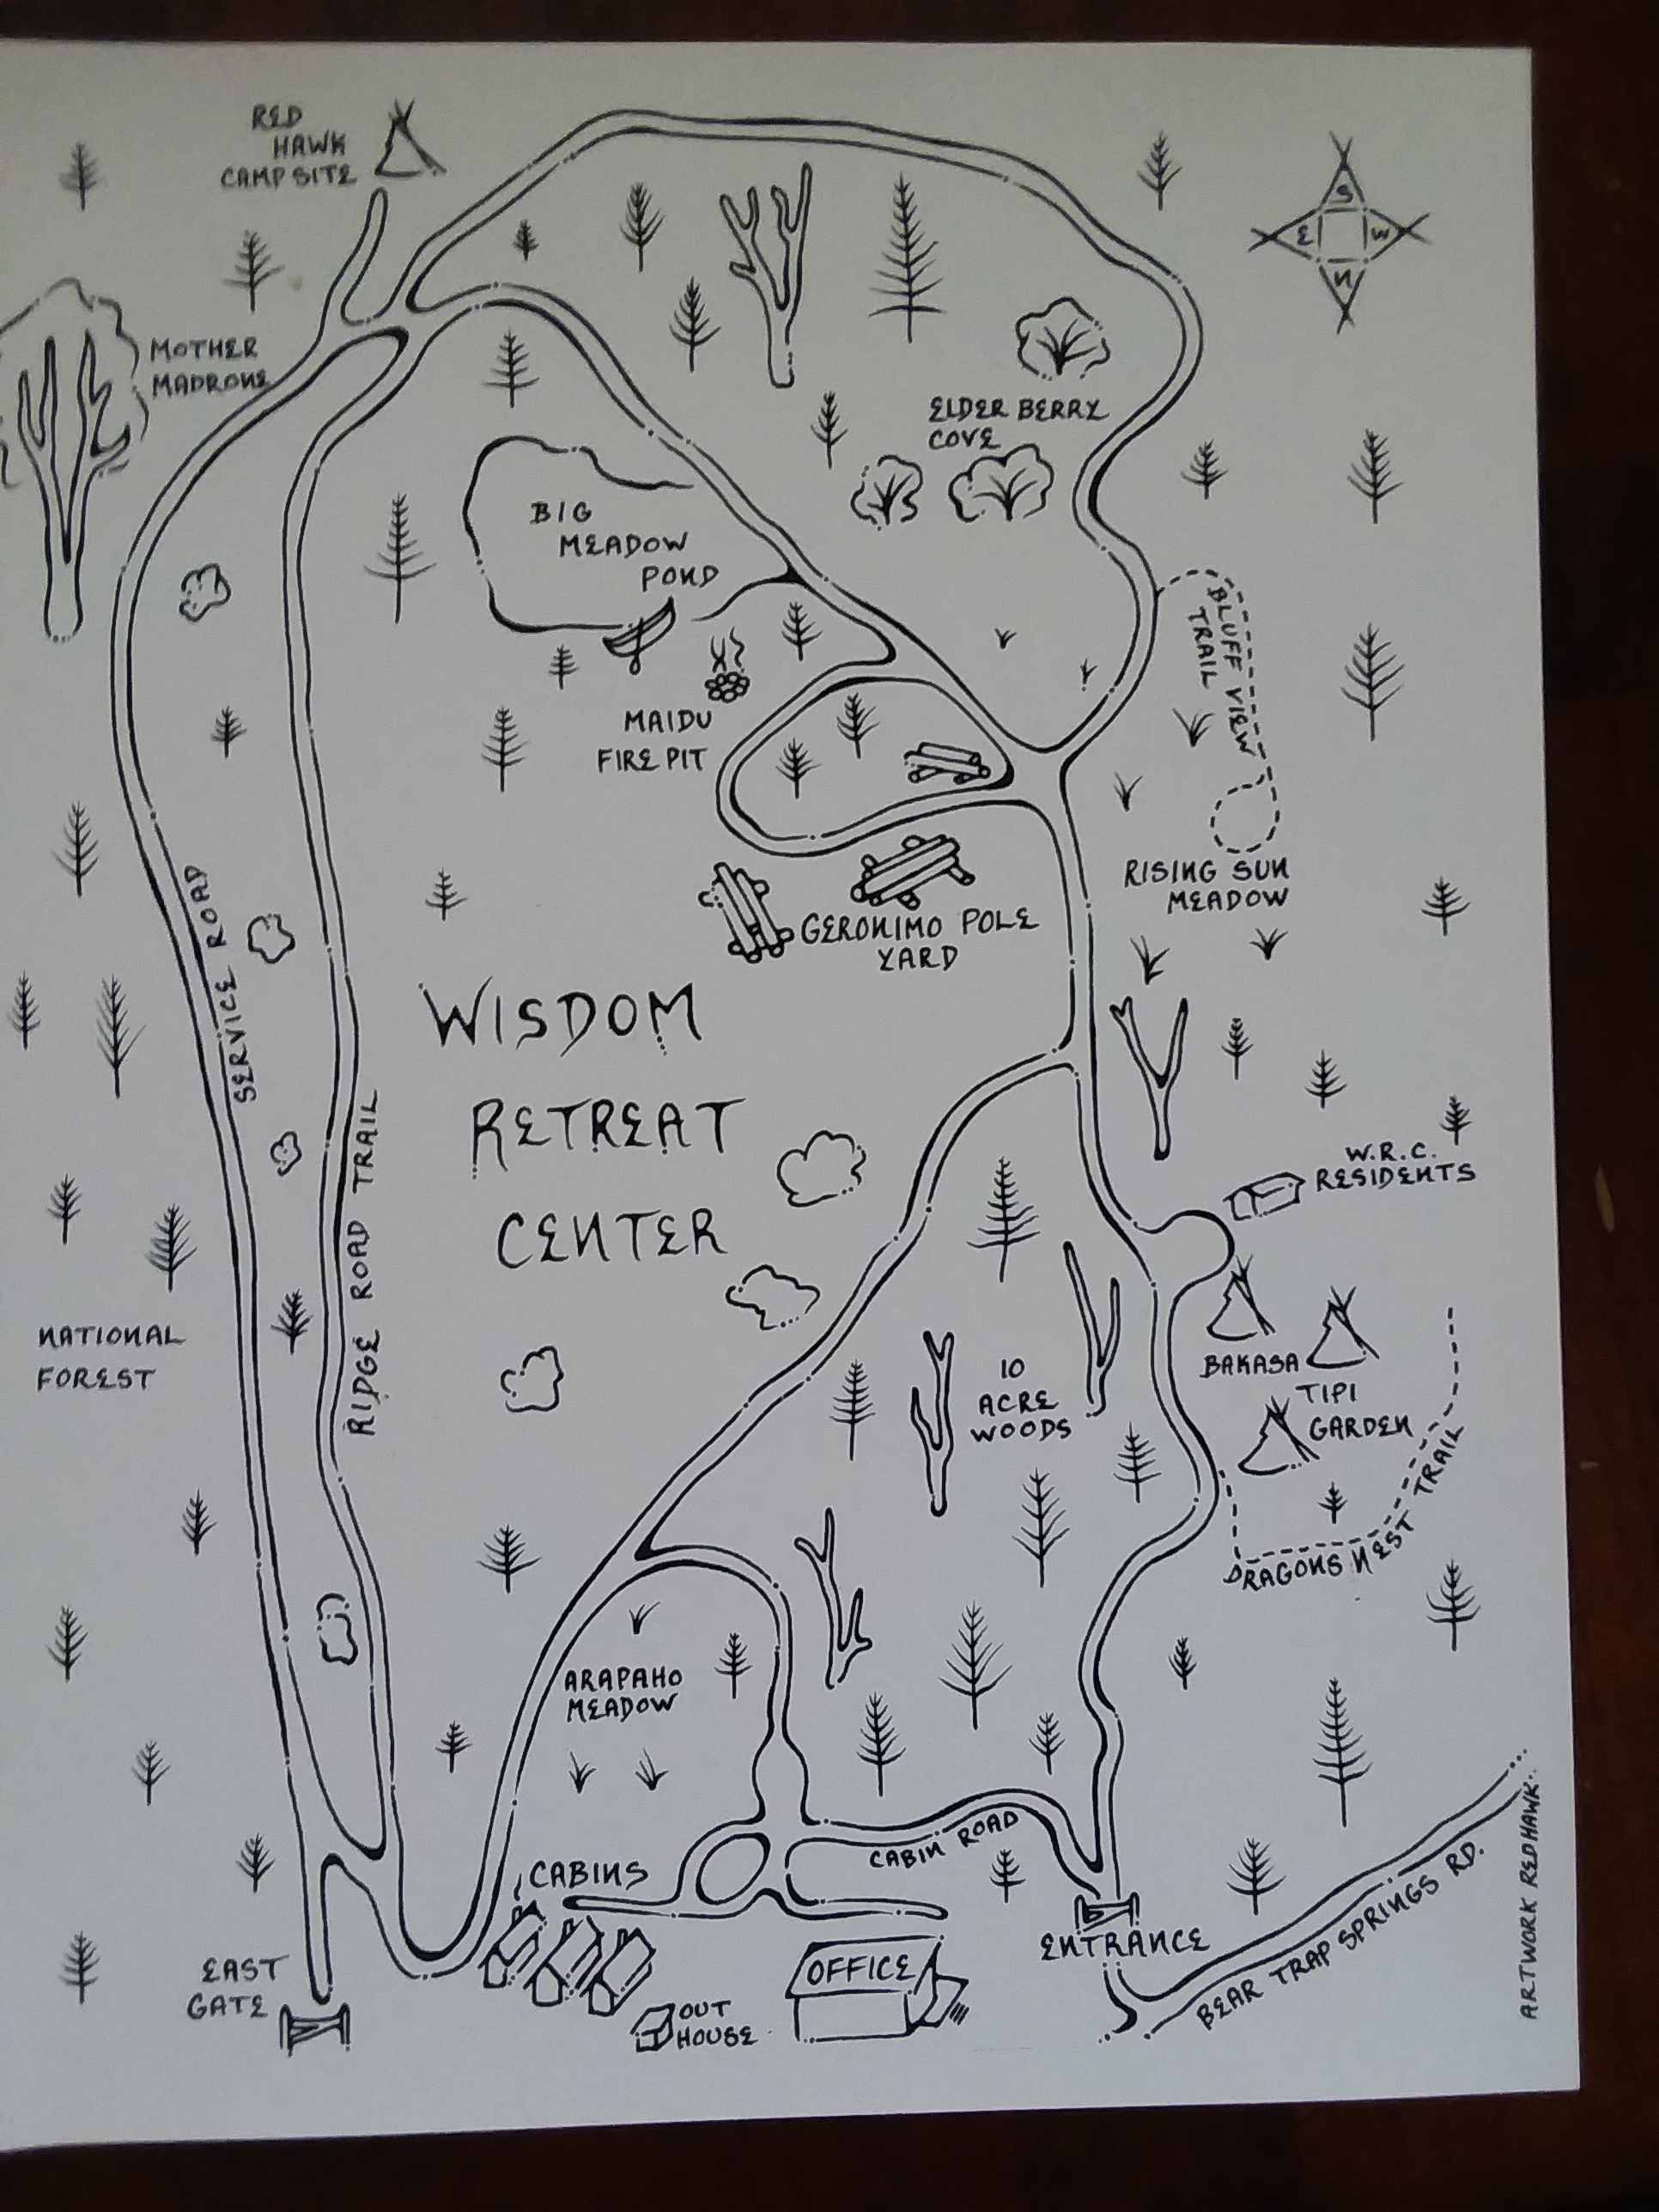 RED
HAWK
CAMPSITE
S
E
W
N
MOTHER
MADRONE
ELDER BERRY
COVE
BIG
MEADOW
POND
BLUFF VIEW
TRAIL
MAIDU
FIRE PIT
RISING SUN
MEADOW
GERONIMO POLE
YARD
SERVICE ROAD
WISDOM
RETREAT
CENTER
RIDGE ROAD TRAIL
W.R.C.
RESIDENTS
NATIONAL
FOREST
BAKASA
TIPI
GARDEN
10
ACRE
WOODS
DRAGONS NEST TRAIL
ARAPAHO
MEADOW
CABIN ROAD
CABINS
ENTRANCE
EAST
GATE
OFFICE
OUT
HOUSE
BEAR TRAP SPRINGS RD.
ARTWORK REDHAWK